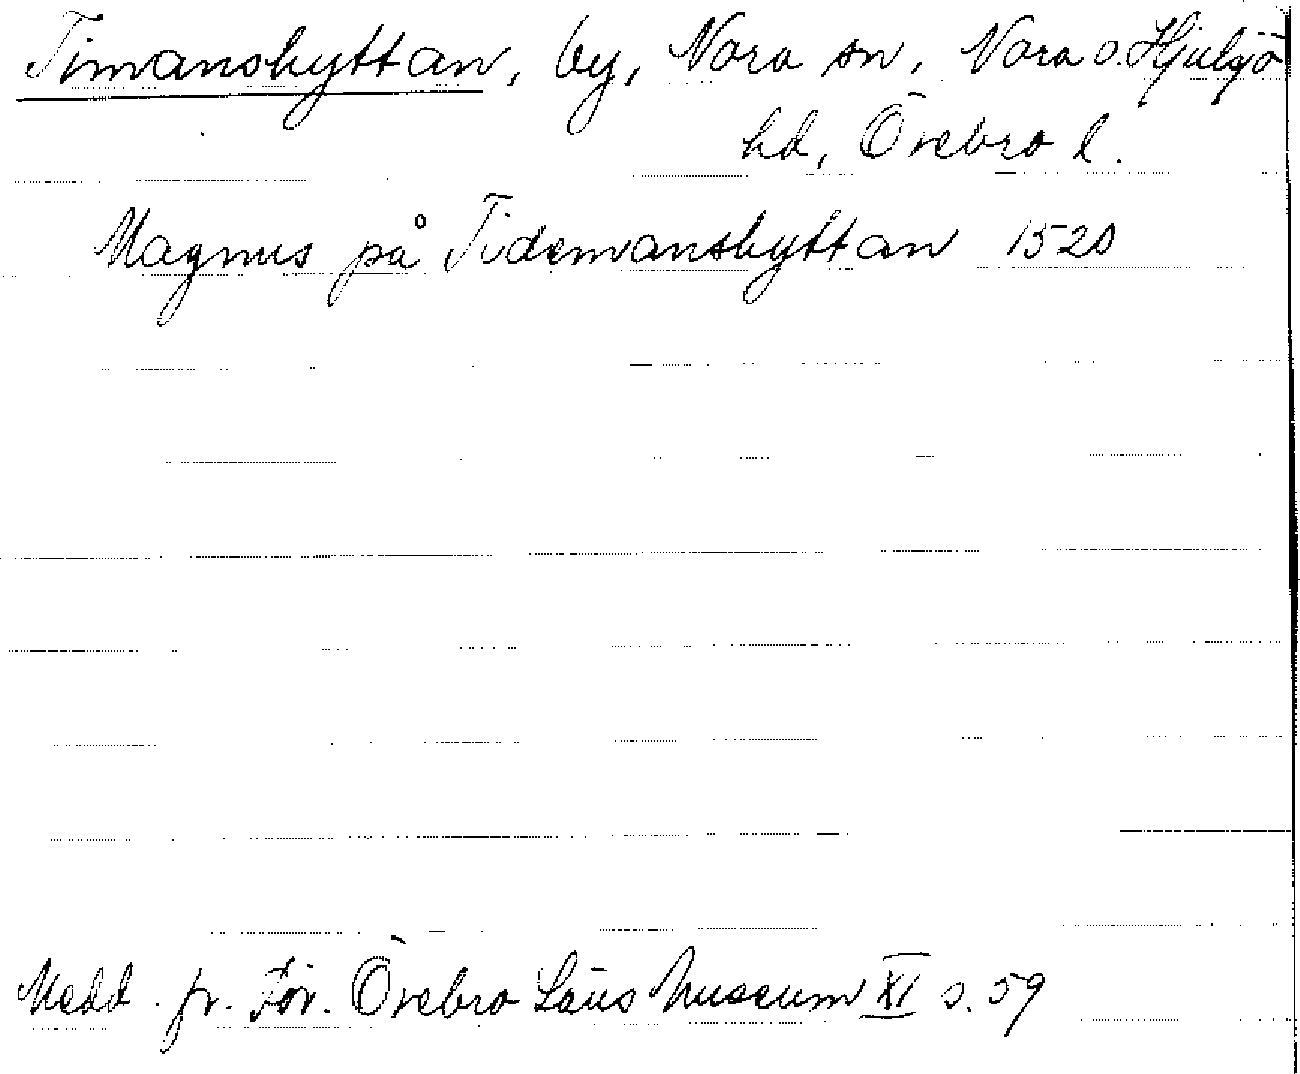 Timanshyttan, by, Nora sn, Nora o. Hjulsjö
hd, Örebro l.
Magnus på Tidemanshyttan 1520
Medd. fr. För. Örebro Läns Museum XI s. 59